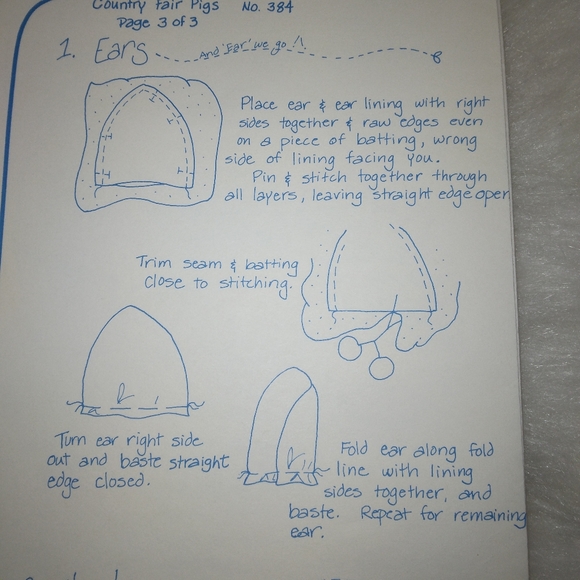 Country Fair Pigs No. 384
Page 3 of 3
1. Ears And 'Ear' we go!!
Place ear & ear lining with right
sides together & raw edges even
on a piece of batting, wrong
side of lining facing you.
Pin & stitch together through
all layers, leaving straight edge open
Trim seam & batting
close to stitching.
Turn ear right side
out and baste straight
edge closed.
Fold ear along fold
line with lining
sides together, and
baste. Repeat for remaining
ear.